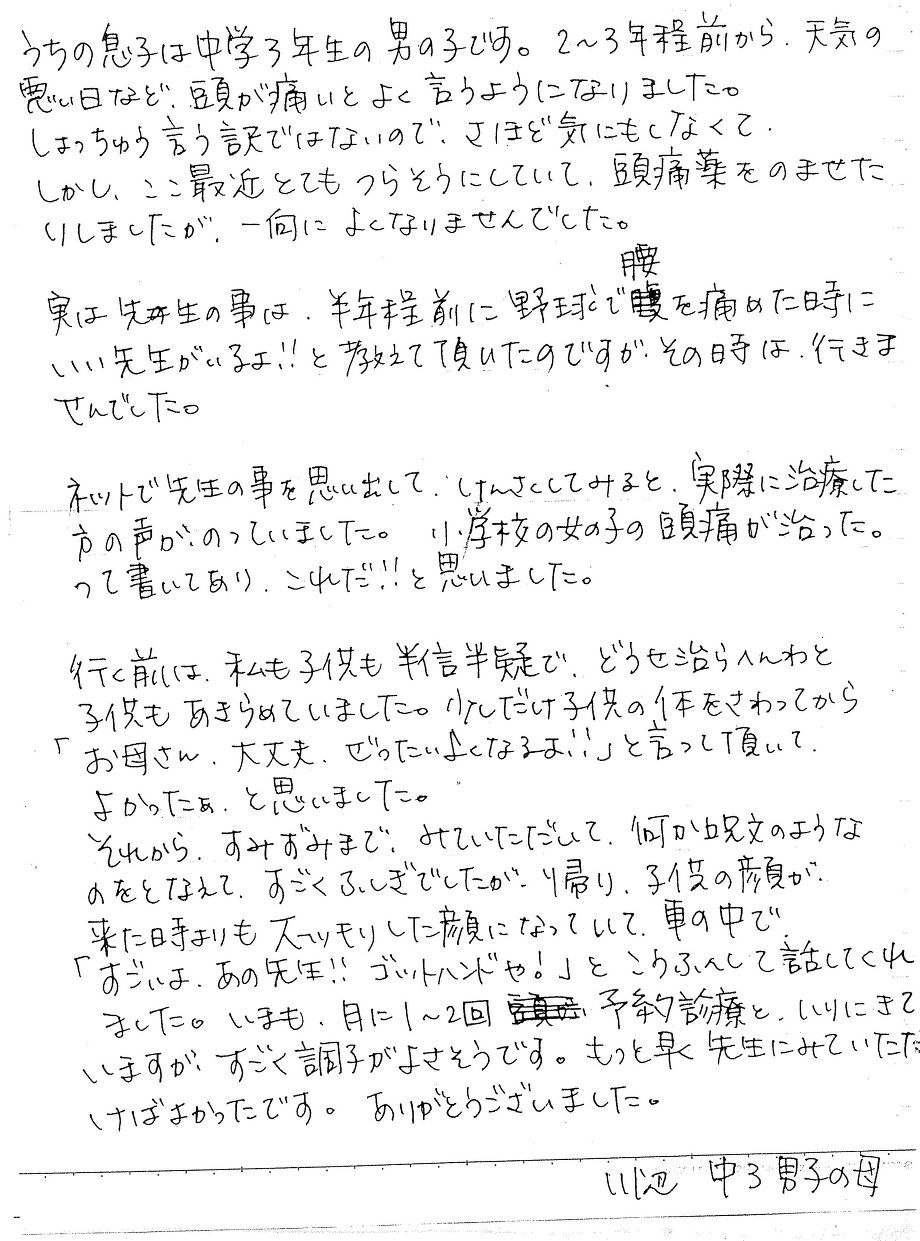 うちの息子は中学3年生の男の子です。2〜3年程前から、天気の
悪い日など、頭が痛いとよく言うようになりました。
しょっちゅう言う訳ではないので、さほど気にもしなくて、
しかし、ここ最近とてもつらそうにしていて、頭痛薬をのませた
りしましたが、一向によくなりませんでした。
実は先生の事は、半年程前に野球で腰を痛めた時に
いい先生がいるよ!!と教えて頂いたのですが、その時は、行きま
せんでした。
ネットで先生の事を思い出して、けんさくしてみると、実際に治療した
方の声が、のっていました。小学校の女の子の頭痛が治った。
って書いてあり、これだ!!と思いました。
行く前は、私も子供も半信半疑で、どうせ治らへんわと
子供もあきらめていました。少しだけ子供の体をさわってから
「お母さん、大丈夫、ぜったいよくなるよ!!」と言って頂いて、
よかったぁ、と思いました。
それから、すみずみまで、みていただいて、何か呪文のような
のをとなえて、すごくふしぎでしたが、帰り、子供の顔が、
来た時よりもスッキリした顔になっていて、車の中で、
「すごいよ、あの先生!!ゴットハンドや!」とこうふんして話してくれ
ました。いまも、月に1〜2回 予約診療と、いりにきて
いますが、すごく調子がよさそうです。もっと早く先生にみていただ
けばよかったです。ありがとうございました。
川辺 中3男子の母